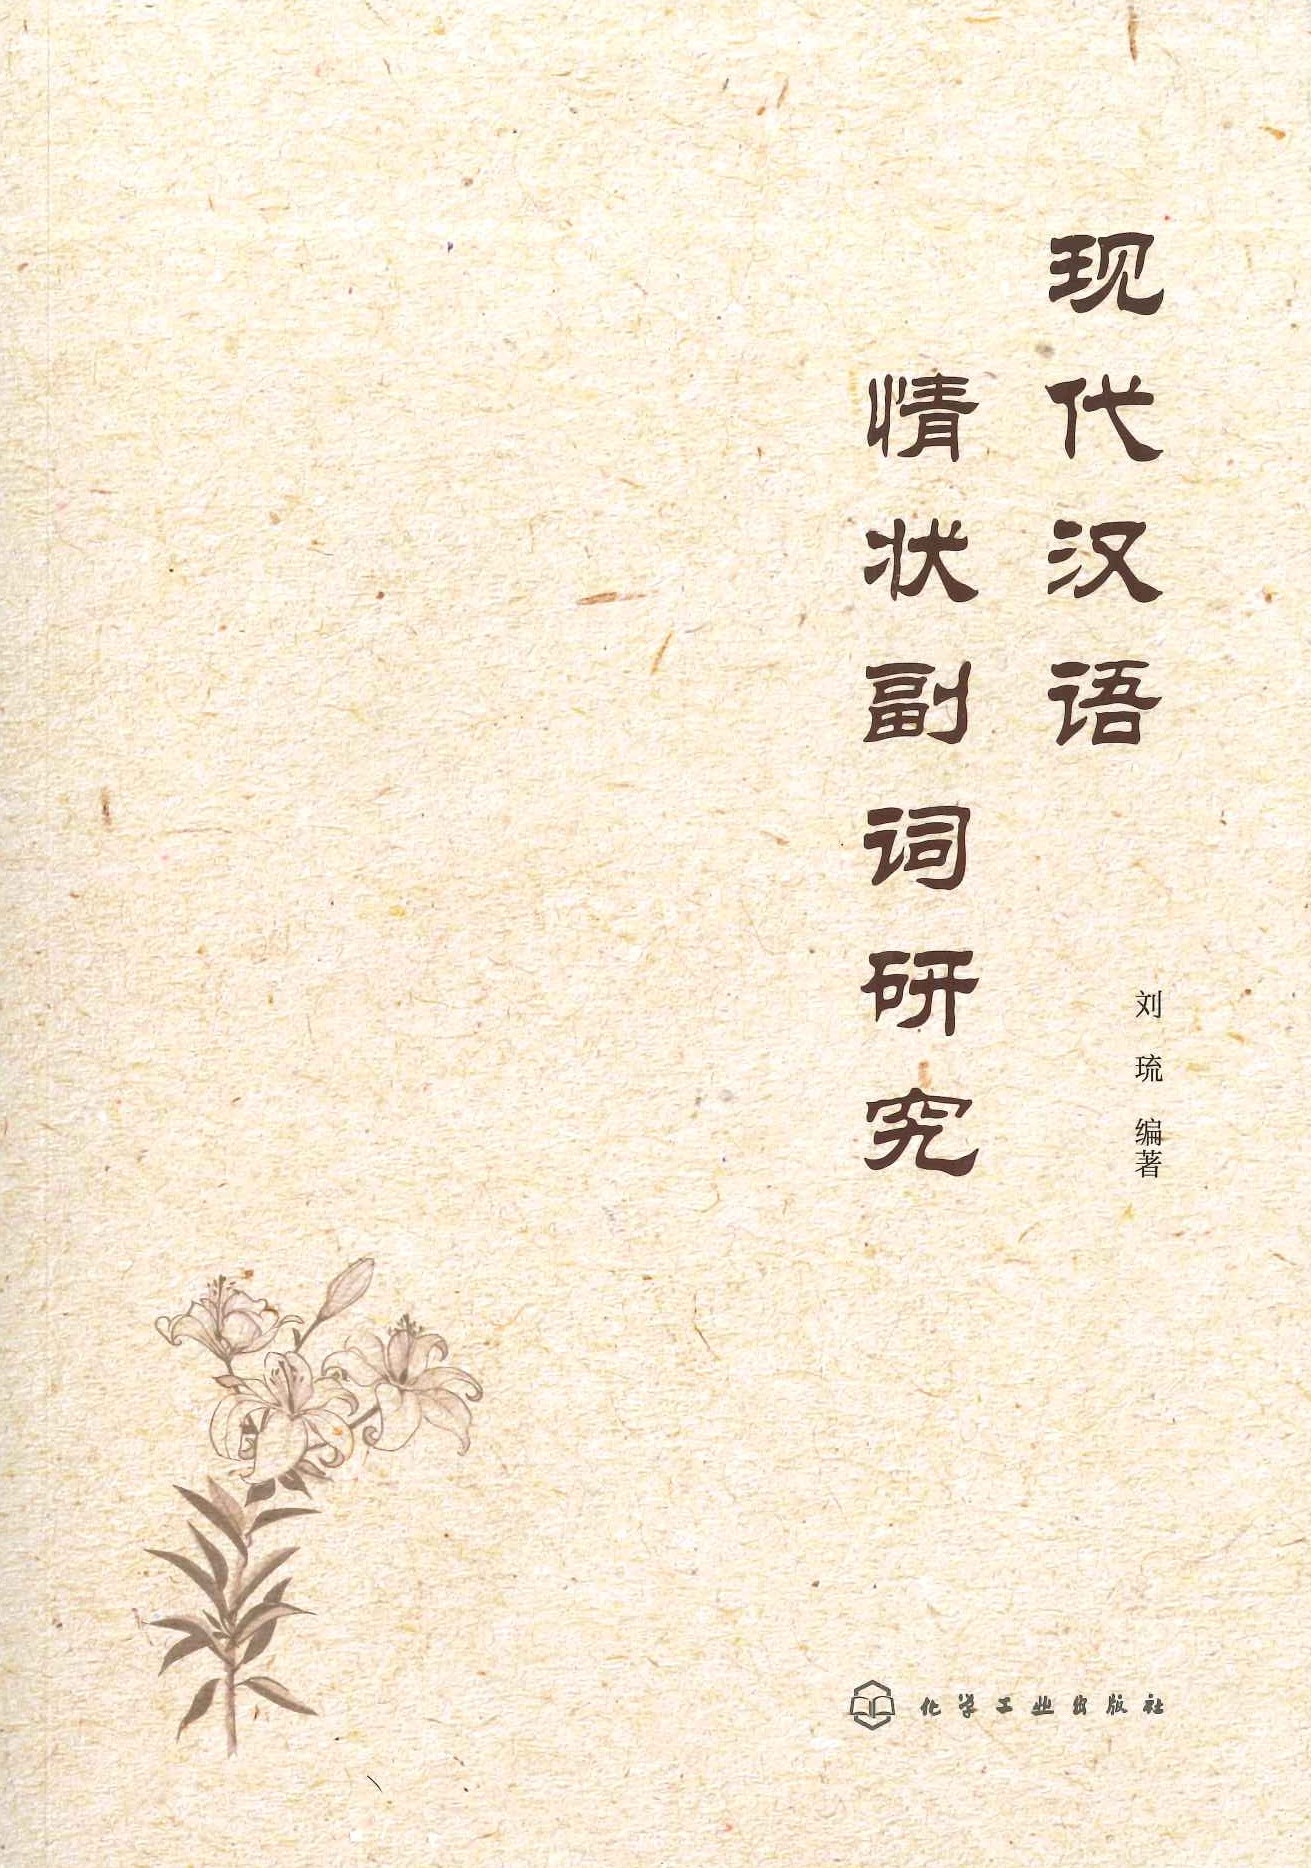 现代汉语
情状副词研究
刘琉 编著
化学工业出版社